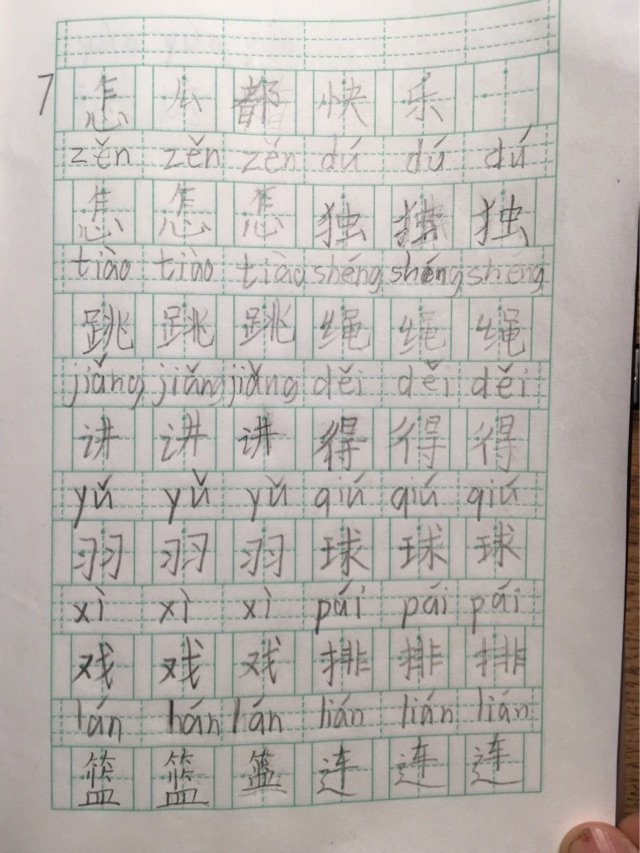 7 怎么都快乐
zěn zěn zěn dú dú dú
怎怎怎独独独
tiào tiào tiào shéng shéng shéng
跳跳跳绳绳绳
jiǎng jiǎng jiǎng děi děi děi
讲讲讲得得得
yǔ yǔ yǔ qiú qiú qiú
羽羽羽球球球
xì xì xì pái pái pái
戏戏戏排排排
lán lán lán lián lián lián
篮篮篮连连连